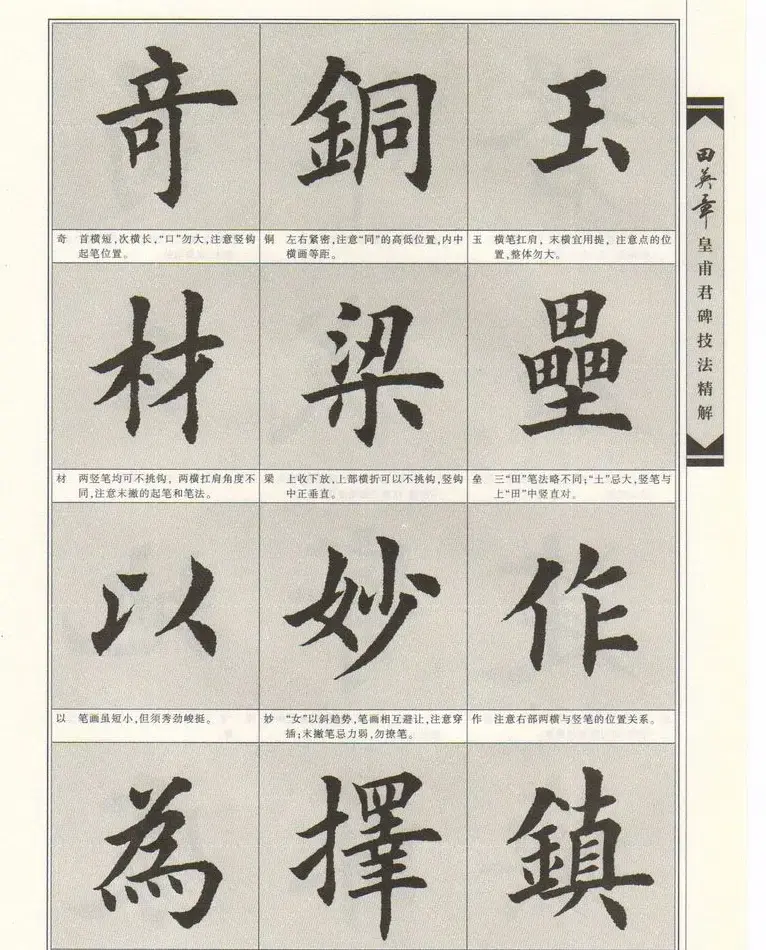 奇
銅
玉
奇 首横短,次横长,“口”勿大,注意竖钩
起笔位置。
铜 左右紧密,注意“同”的高低位置,内中
横画等距。
玉 横笔扛肩，末横宜用提，注意点的位
置,整体勿大。
材
梁
壘
材 两竖笔均可不挑钩，两横扛肩角度不
同,注意末撇的起笔和笔法。
梁 上收下放,上部横折可以不挑钩,竖钩
中正垂直。
垒 三“田”笔法略不同;“土”忌大,竖笔与
上“田”中竖直对。
以
妙
作
以 笔画虽短小,但须秀劲峻挺。
妙 “女”以斜趋势,笔画相互避让,注意穿
插;末撇笔忌力弱,勿撩笔。
作 注意右部两横与竖笔的位置关系。
為
擇
鎮
田英章皇甫君碑技法精解